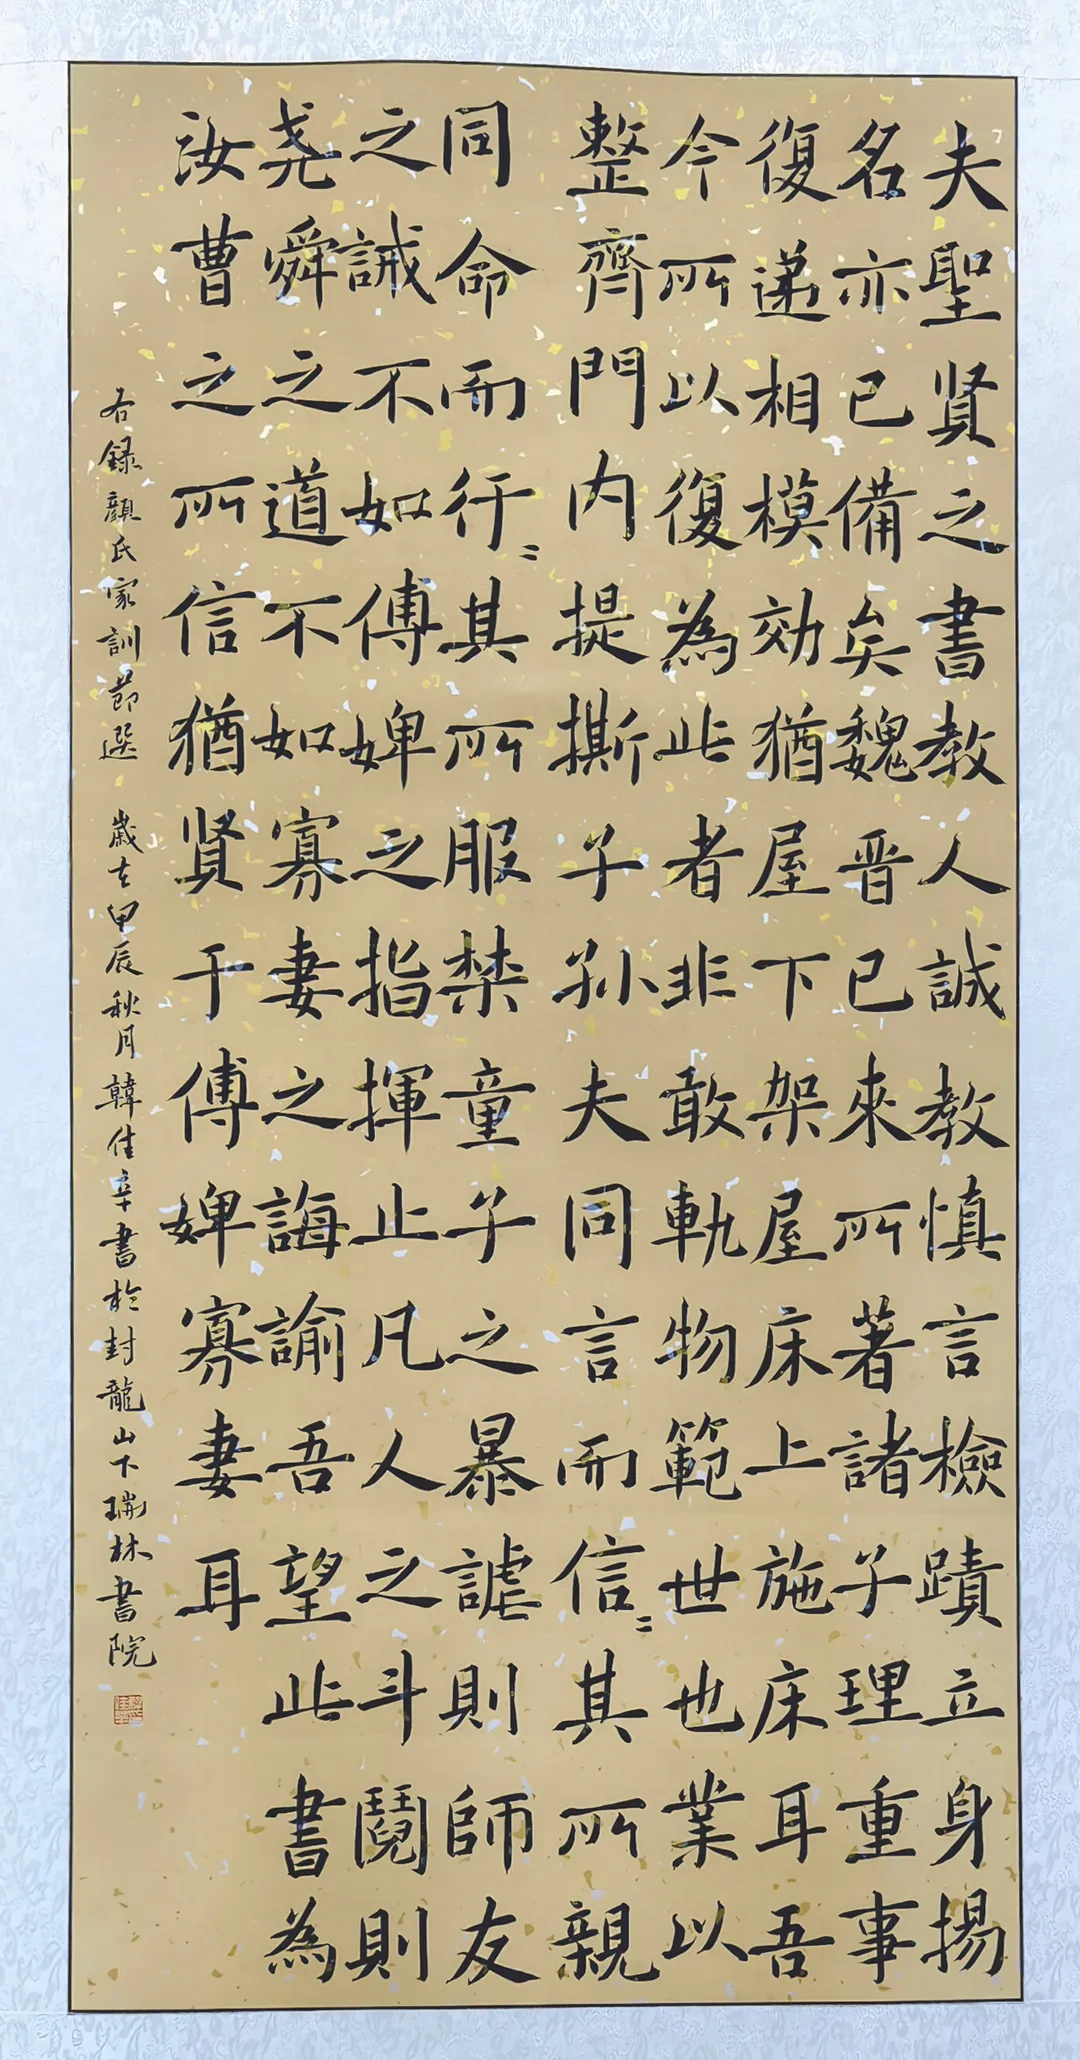 夫聖賢之書教人誠教慎言檢蹟立身揚
名亦已備矣魏晋已來所著諸子理重事
復递相模効猶屋下架屋床上施床耳吾
今所以復為此者非敢軌物範世也業以
整齊門内提撕子孙夫同言而信〻其所親
同命而行〻其所服禁童子之暴謔則師友
之誡不如傅婢之指揮止凡人之斗鬩則
尧舜之道不如寡妻之誨諭吾望此書為
汝曹之所信猶賢于傅婢寡妻耳
右録顔氏家訓節選 歲在甲辰秋月韓佳辛書於封龍山下瑞林書院